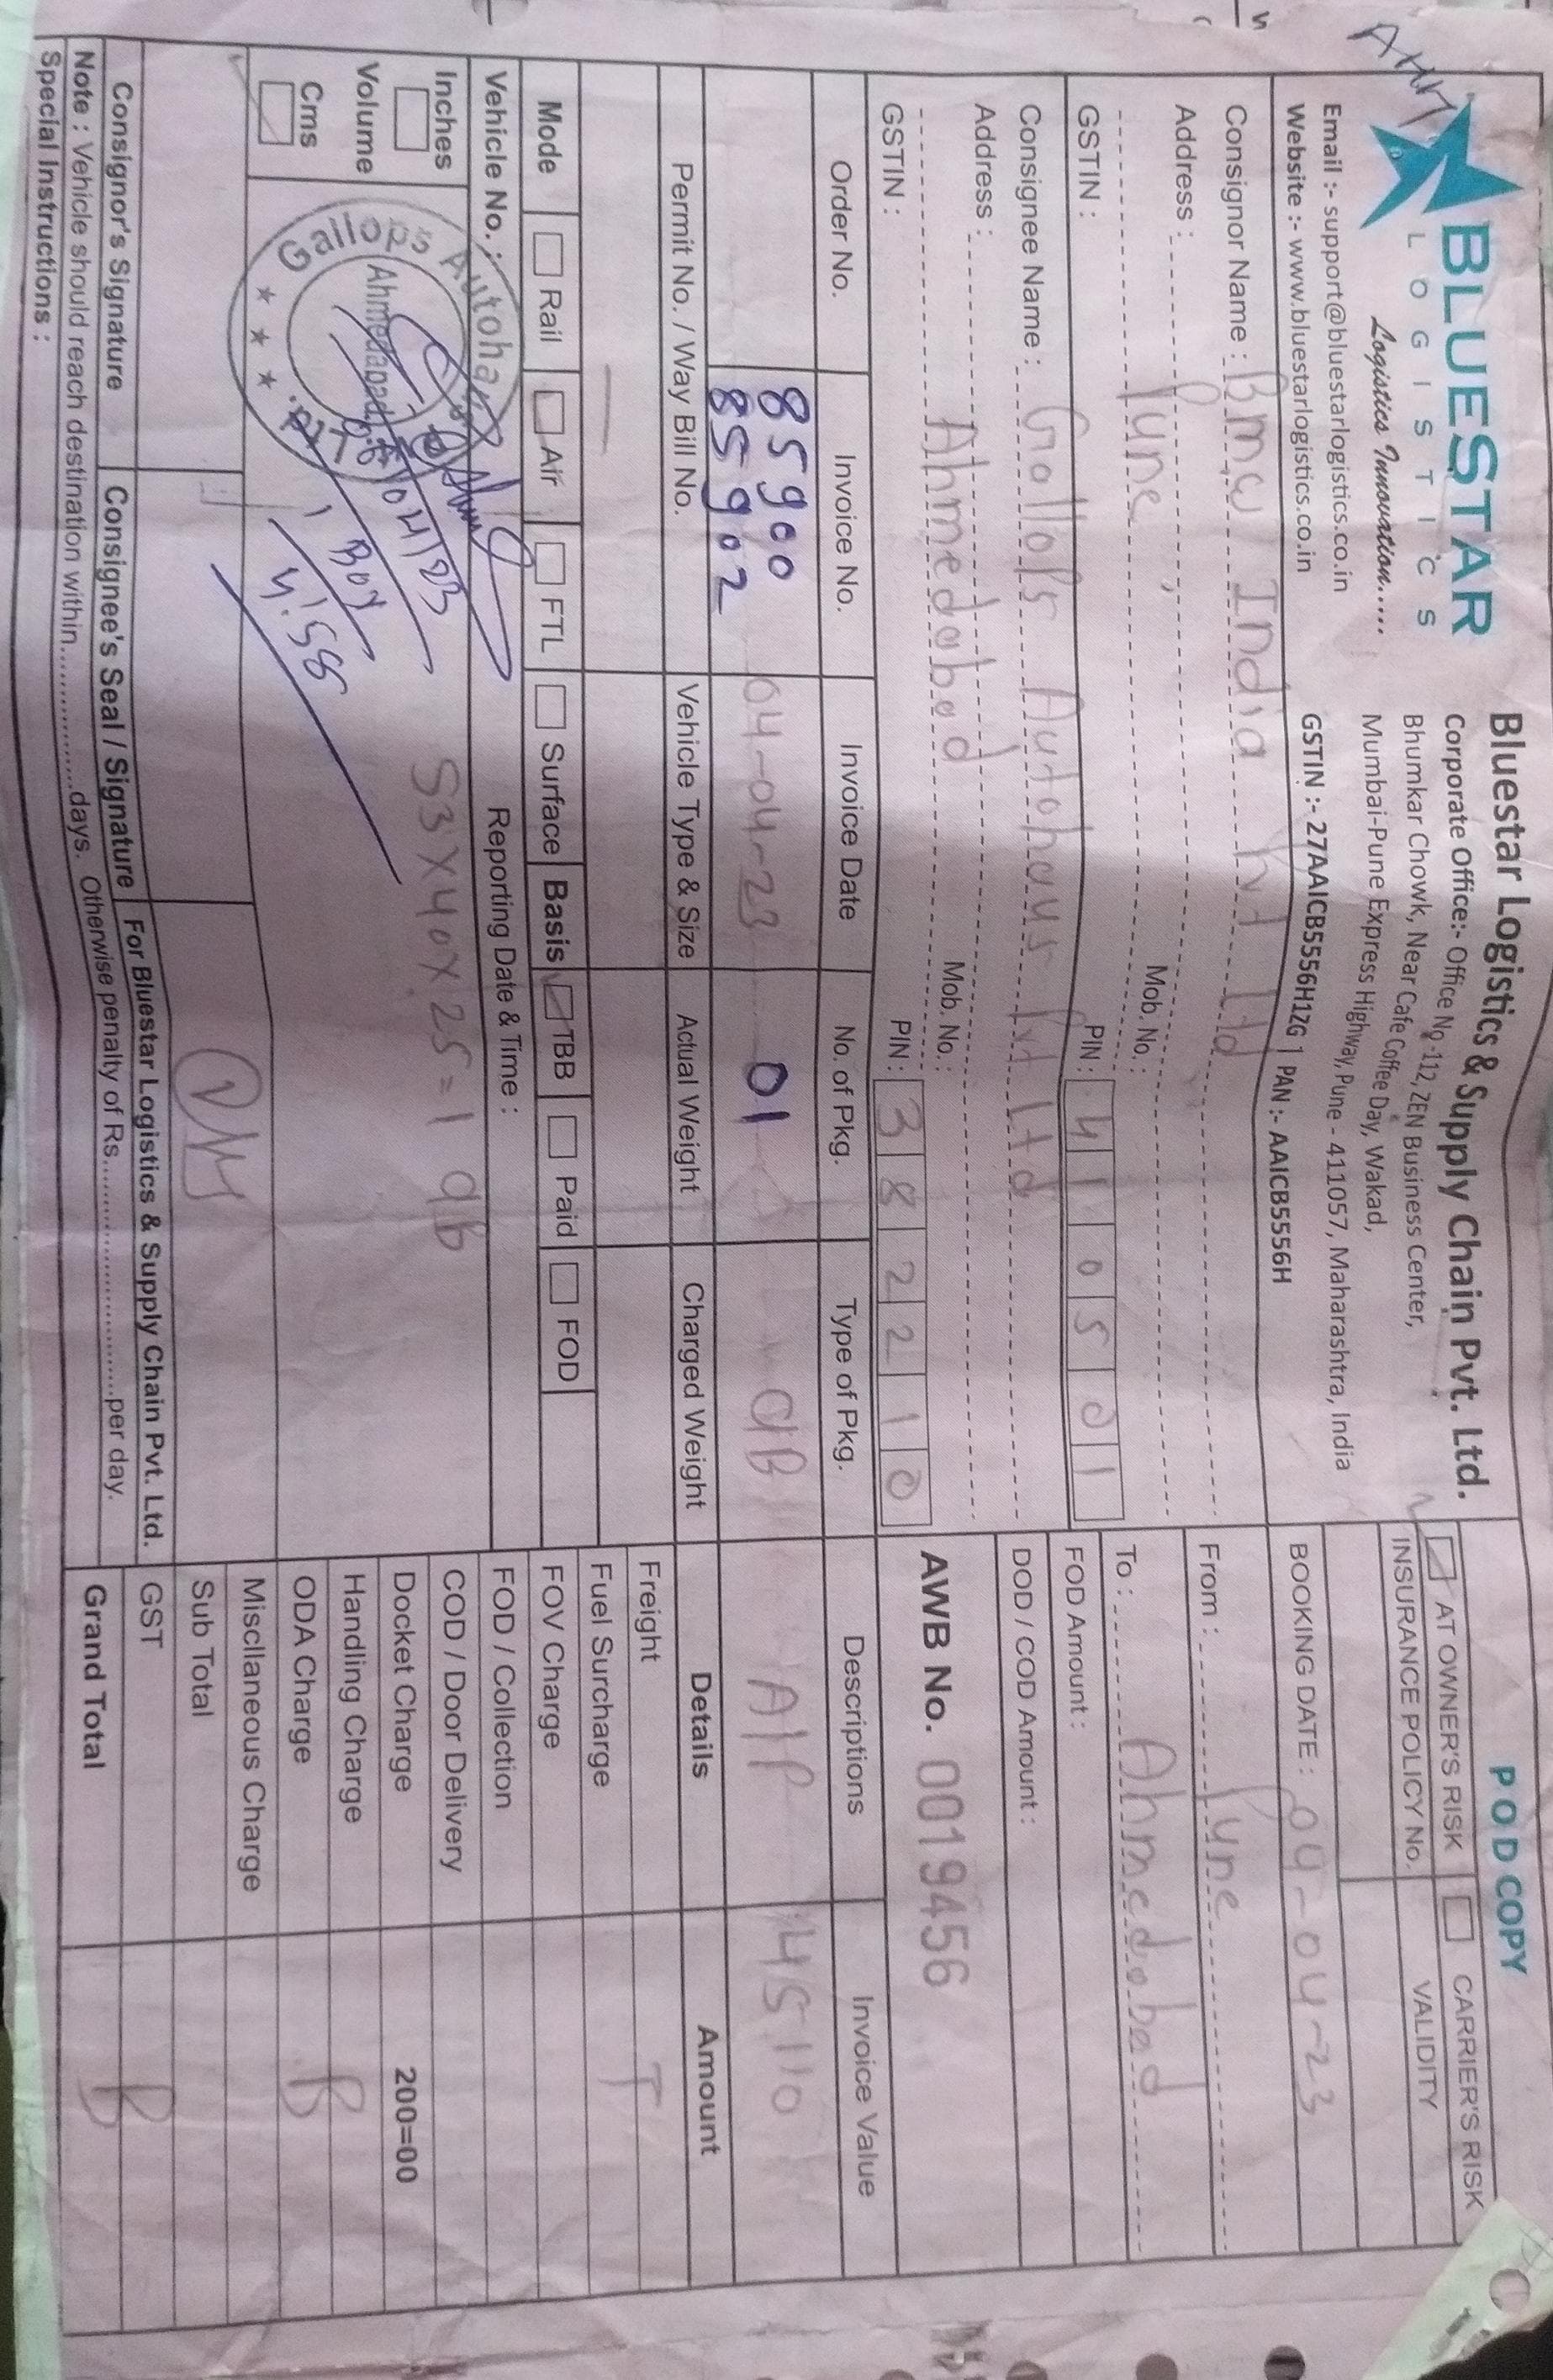 BLUESTAR
LOGISTICS
Logistics Innovation.....
Email :- support@bluestarlogistics.co.in
Website :- www.bluestarlogistics.co.in
Bluestar Logistics & Supply Chain Pvt. Ltd.
Corporate Office:- Office No -112, ZEN Business Center,
Bhumkar Chowk, Near Cafe Coffee Day, Wakad,
Mumbai-Pune Express Highway, Pune - 411057, Maharashtra, India
GSTIN :- 27AAICB5556H1ZG | PAN :- AAICB5556H
POD COPY
AT OWNER'S RISK CARRIER'S RISK
INSURANCE POLICY No. VALIDITY
BOOKING DATE : 04-04-23
From : Pune
To : Ahmedabad
FOD Amount :
DOD / COD Amount :
AWB No. 0019456
Consignor Name : Bmw India Pvt Ltd
Address :
Pune Mob. No. :
GSTIN : PIN : 410501
Consignee Name : Gallops Autohaus Pvt Ltd
Address :
Ahmedabad Mob. No. :
GSTIN : PIN : 382210
Order No. Invoice No. Invoice Date No. of Pkg. Type of Pkg. Descriptions Invoice Value
85900
85902 04-04-23 01 CIB A/P 45110
Permit No. / Way Bill No. Vehicle Type & Size Actual Weight Charged Weight
—
Mode Rail Air FTL Surface Basis TBB Paid FOD
Vehicle No. : Reporting Date & Time :
Inches
Volume
Cms
Gallops Autohaus Pvt. Ltd.
Ahmedabad
04/23
1 Box
4:58
53X40X25=1 CIB
Details Amount
Freight T
Fuel Surcharge
FOV Charge
FOD / Collection
COD / Door Delivery
Docket Charge 200=00
Handling Charge B
ODA Charge
Miscllaneous Charge
Sub Total
GST B
Grand Total
Consignor's Signature Consignee's Seal / Signature For Bluestar Logistics & Supply Chain Pvt. Ltd.
Note : Vehicle should reach destination within.................days. Otherwise penalty of Rs..............................per day.
Special Instructions :